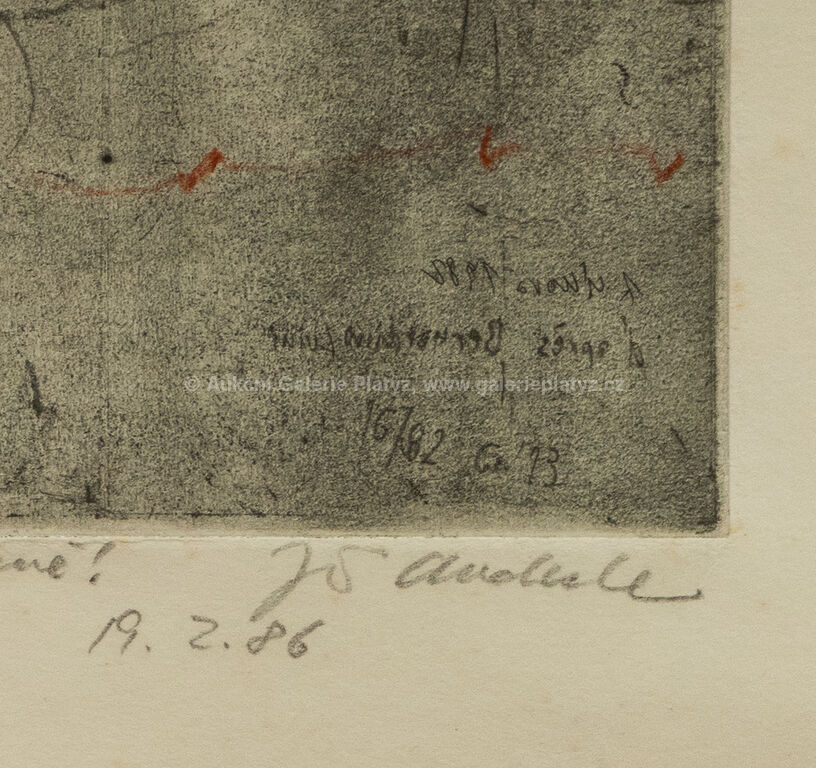 1982
d'après Bernardino Luini
© Aukční Galerie Platýz, www.galerieplatyz.cz
16/82
Jř Anderle
19. 2. 86